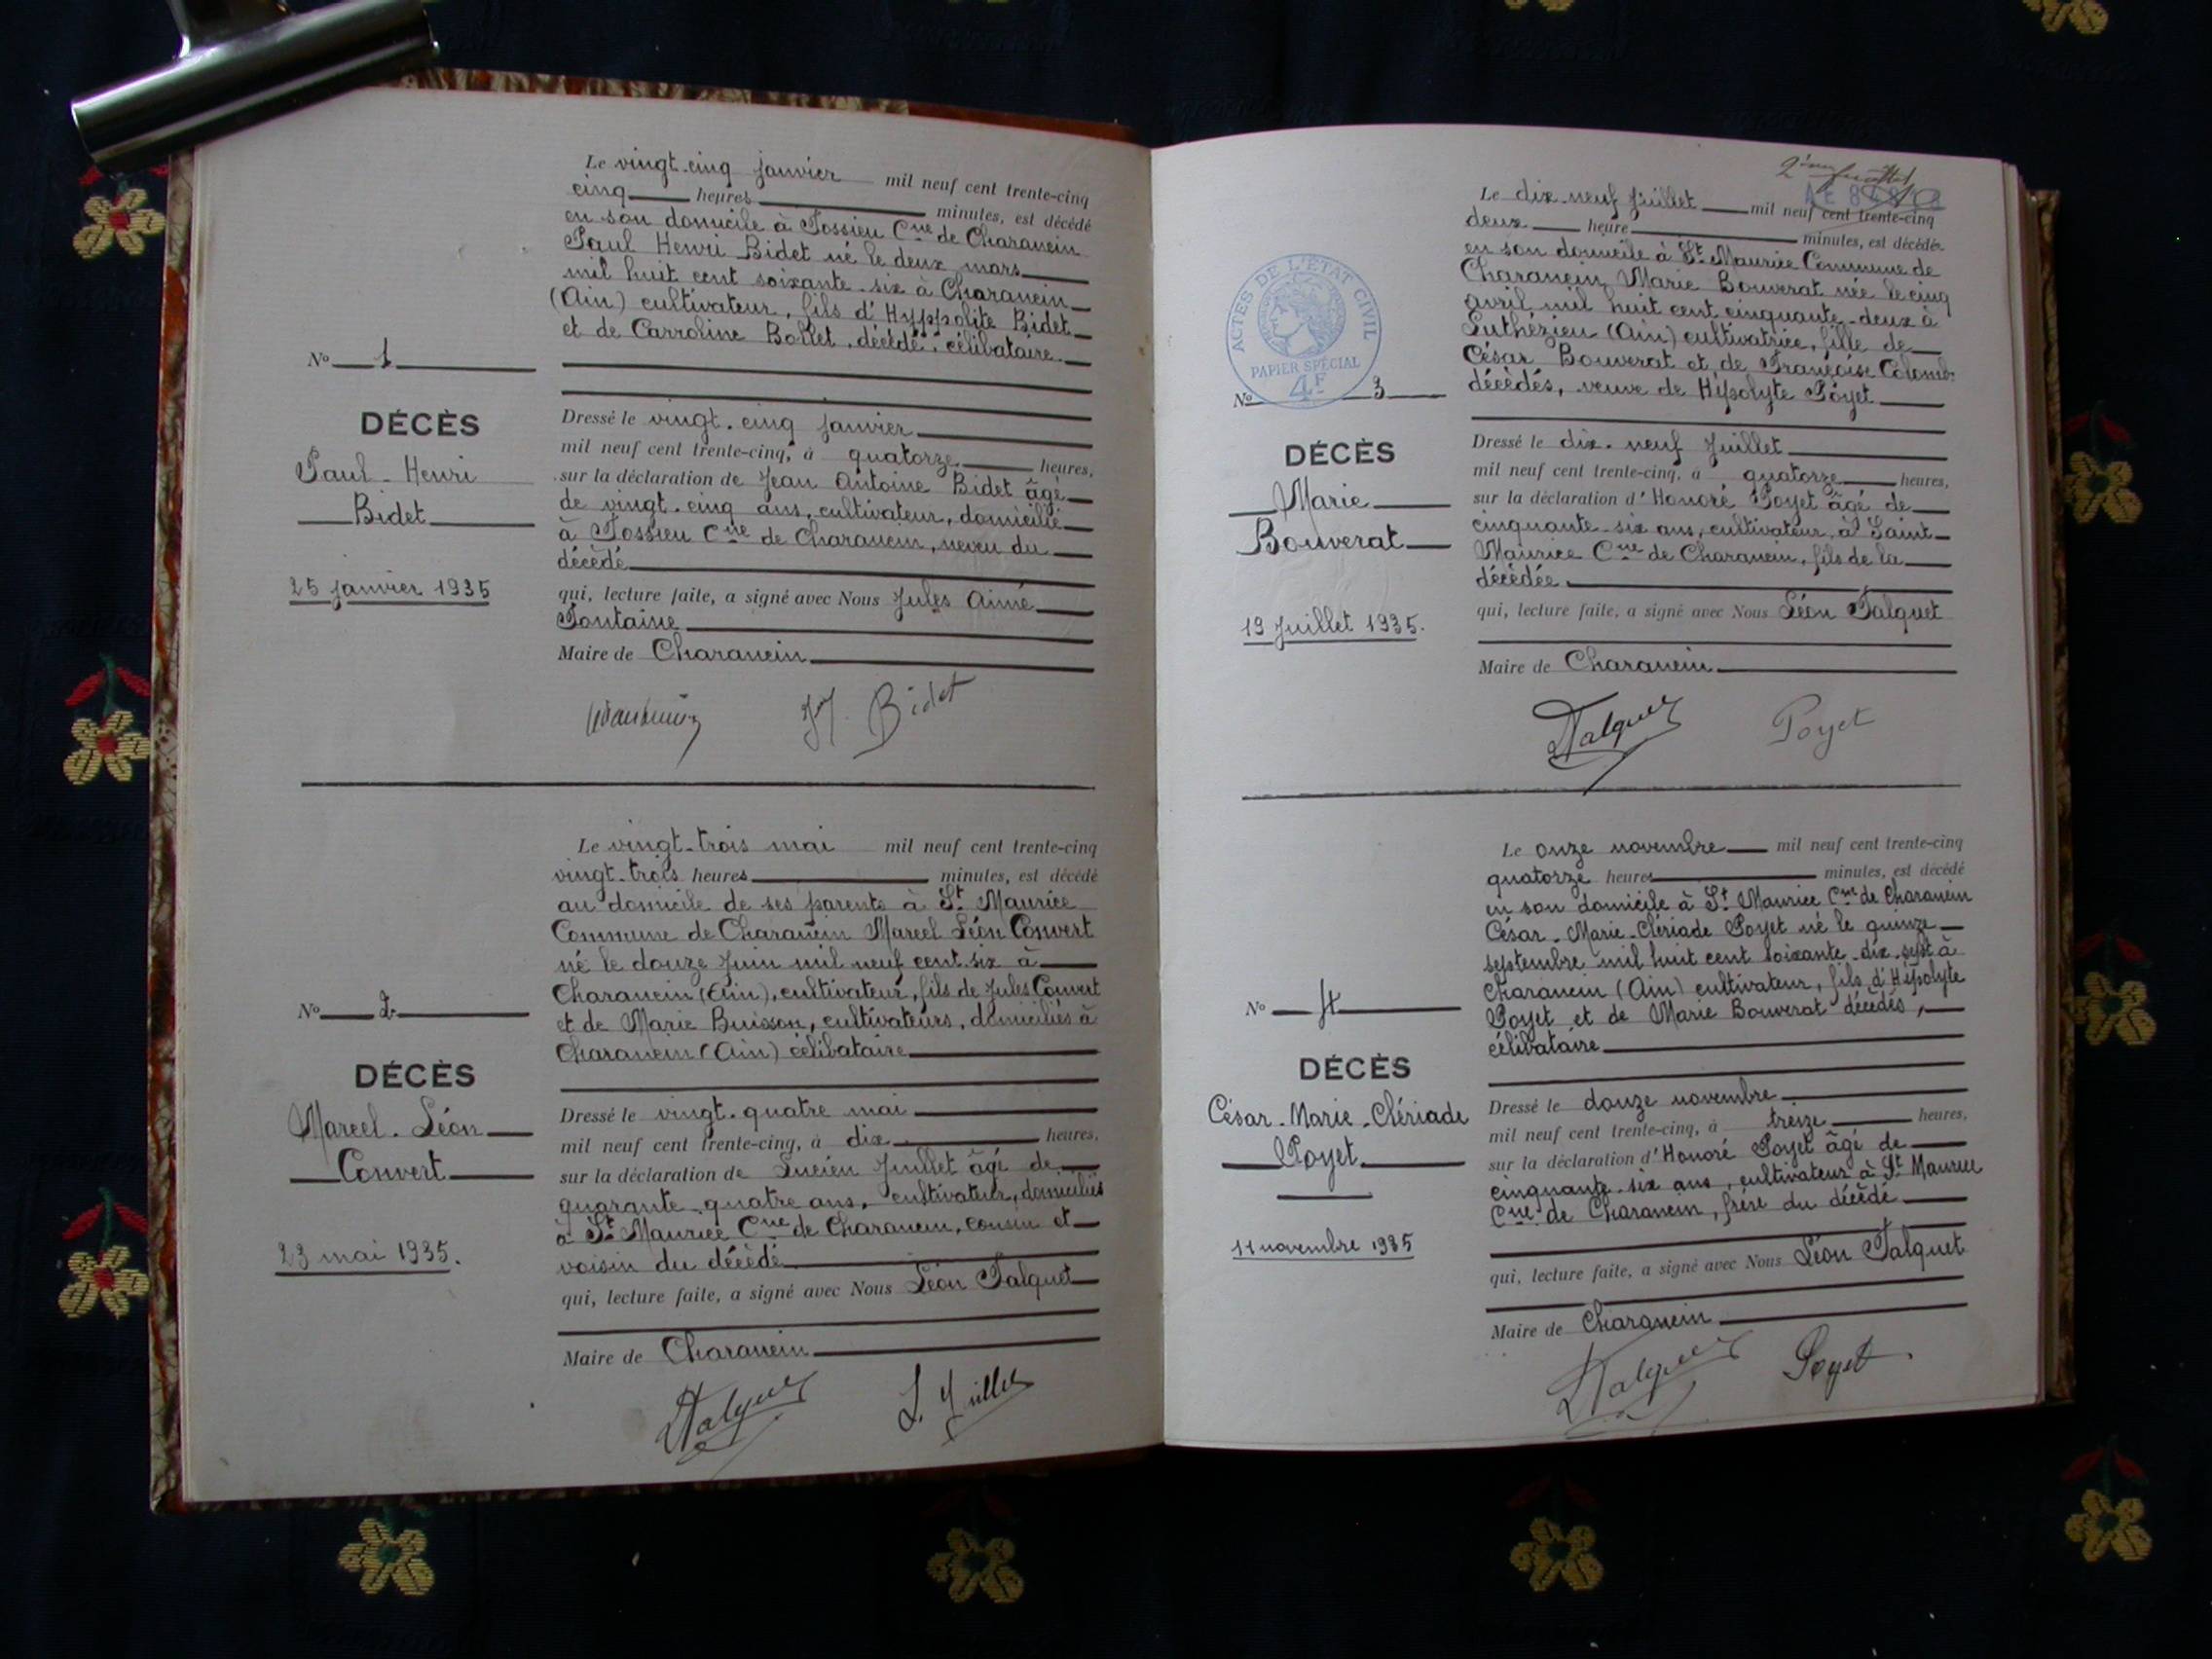 Le vingt-cinq janvier mil neuf cent trente-cinq
cinq heures minutes, est décédé
en son domicile à Fossieu Cne de Charancin
Paul Henri Bidet né le deux mars
mil huit cent soixante-six à Charancin
(Ain) cultivateur, fils d'Hyppolite Bidet
et de Carroline Bollet, décédé, célibataire.
No 1
DÉCÈS
Paul-Henri
Bidet
25 janvier 1935
Dressé le vingt-cinq janvier
mil neuf cent trente-cinq, à quatorze heures,
sur la déclaration de Jean Antoine Bidet âgé
de vingt-cinq ans, cultivateur, domicilié
à Fossieu Cne de Charancin, neveu du
décédé
qui, lecture faite, a signé avec Nous Jules Aimé
Fontaine
Maire de Charancin
JA. Bidet
Le vingt-trois mai mil neuf cent trente-cinq
vingt-trois heures minutes, est décédé
au domicile de ses parents à St Maurice
Commune de Charancin Marcel Léon Convert
né le douze Juin mil neuf cent six à
Charancin (Ain), cultivateur, fils de Jules Convert
et de Marie Buisson, cultivateurs, domiciliés à
Charancin (Ain) célibataire
No 2
DÉCÈS
Marcel-Léon
Convert
23 mai 1935.
Dressé le vingt-quatre mai
mil neuf cent trente-cinq, à dix heures,
sur la déclaration de Lucien Juillet âgé de
quarante-quatre ans, cultivateur, domiciliés
à St Maurice Cne de Charancin, cousin et
voisin du décédé
qui, lecture faite, a signé avec Nous Léon Falquet
Maire de Charancin
LFalquet L. Juillet
2ème feuillet
Le dix-neuf Juillet mil neuf cent trente-cinq
deux heure minutes, est décédée
en son domicile à St Maurice Commune de
Charancin, Marie Bouverat née le cinq
avril mil huit cent cinquante-deux à
Luthézieu (Ain) cultivatrice, fille de
César Bouverat et de Françoise Colomb
décédés, veuve de Hypolyte Poyet
ACTES DE L'ÉTAT CIVIL
PAPIER SPÉCIAL
4F
No 3
DÉCÈS
Marie
Bouverat
19 Juillet 1935.
Dressé le dix-neuf Juillet
mil neuf cent trente-cinq, à quatorze heures,
sur la déclaration d'Honoré Poyet âgé de
cinquante-six ans, cultivateur, à Saint-
Maurice Cne de Charancin, fils de la
décédée.
qui, lecture faite, a signé avec Nous Léon Falquet
Maire de Charancin
LFalquet Poyet
Le onze novembre mil neuf cent trente-cinq
quatorze heures minutes, est décédé
en son domicile à St Maurice Cne de Charancin
César-Marie-Clériade Poyet né le quinze
septembre mil huit cent soixante-dix-sept à
Charancin (Ain) cultivateur, fils d'Hypolyte
Poyet et de Marie Bouverat décédés,
célibataire
No 4
DÉCÈS
César-Marie-Clériade
Poyet
11 novembre 1935
Dressé le douze novembre
mil neuf cent trente-cinq, à treize heures,
sur la déclaration d'Honoré Poyet âgé de
cinquante-six ans, cultivateur à St Maurice
Cne de Charancin, frère du décédé
qui, lecture faite, a signé avec Nous Léon Falquet
Maire de Charancin
LFalquet Poyet